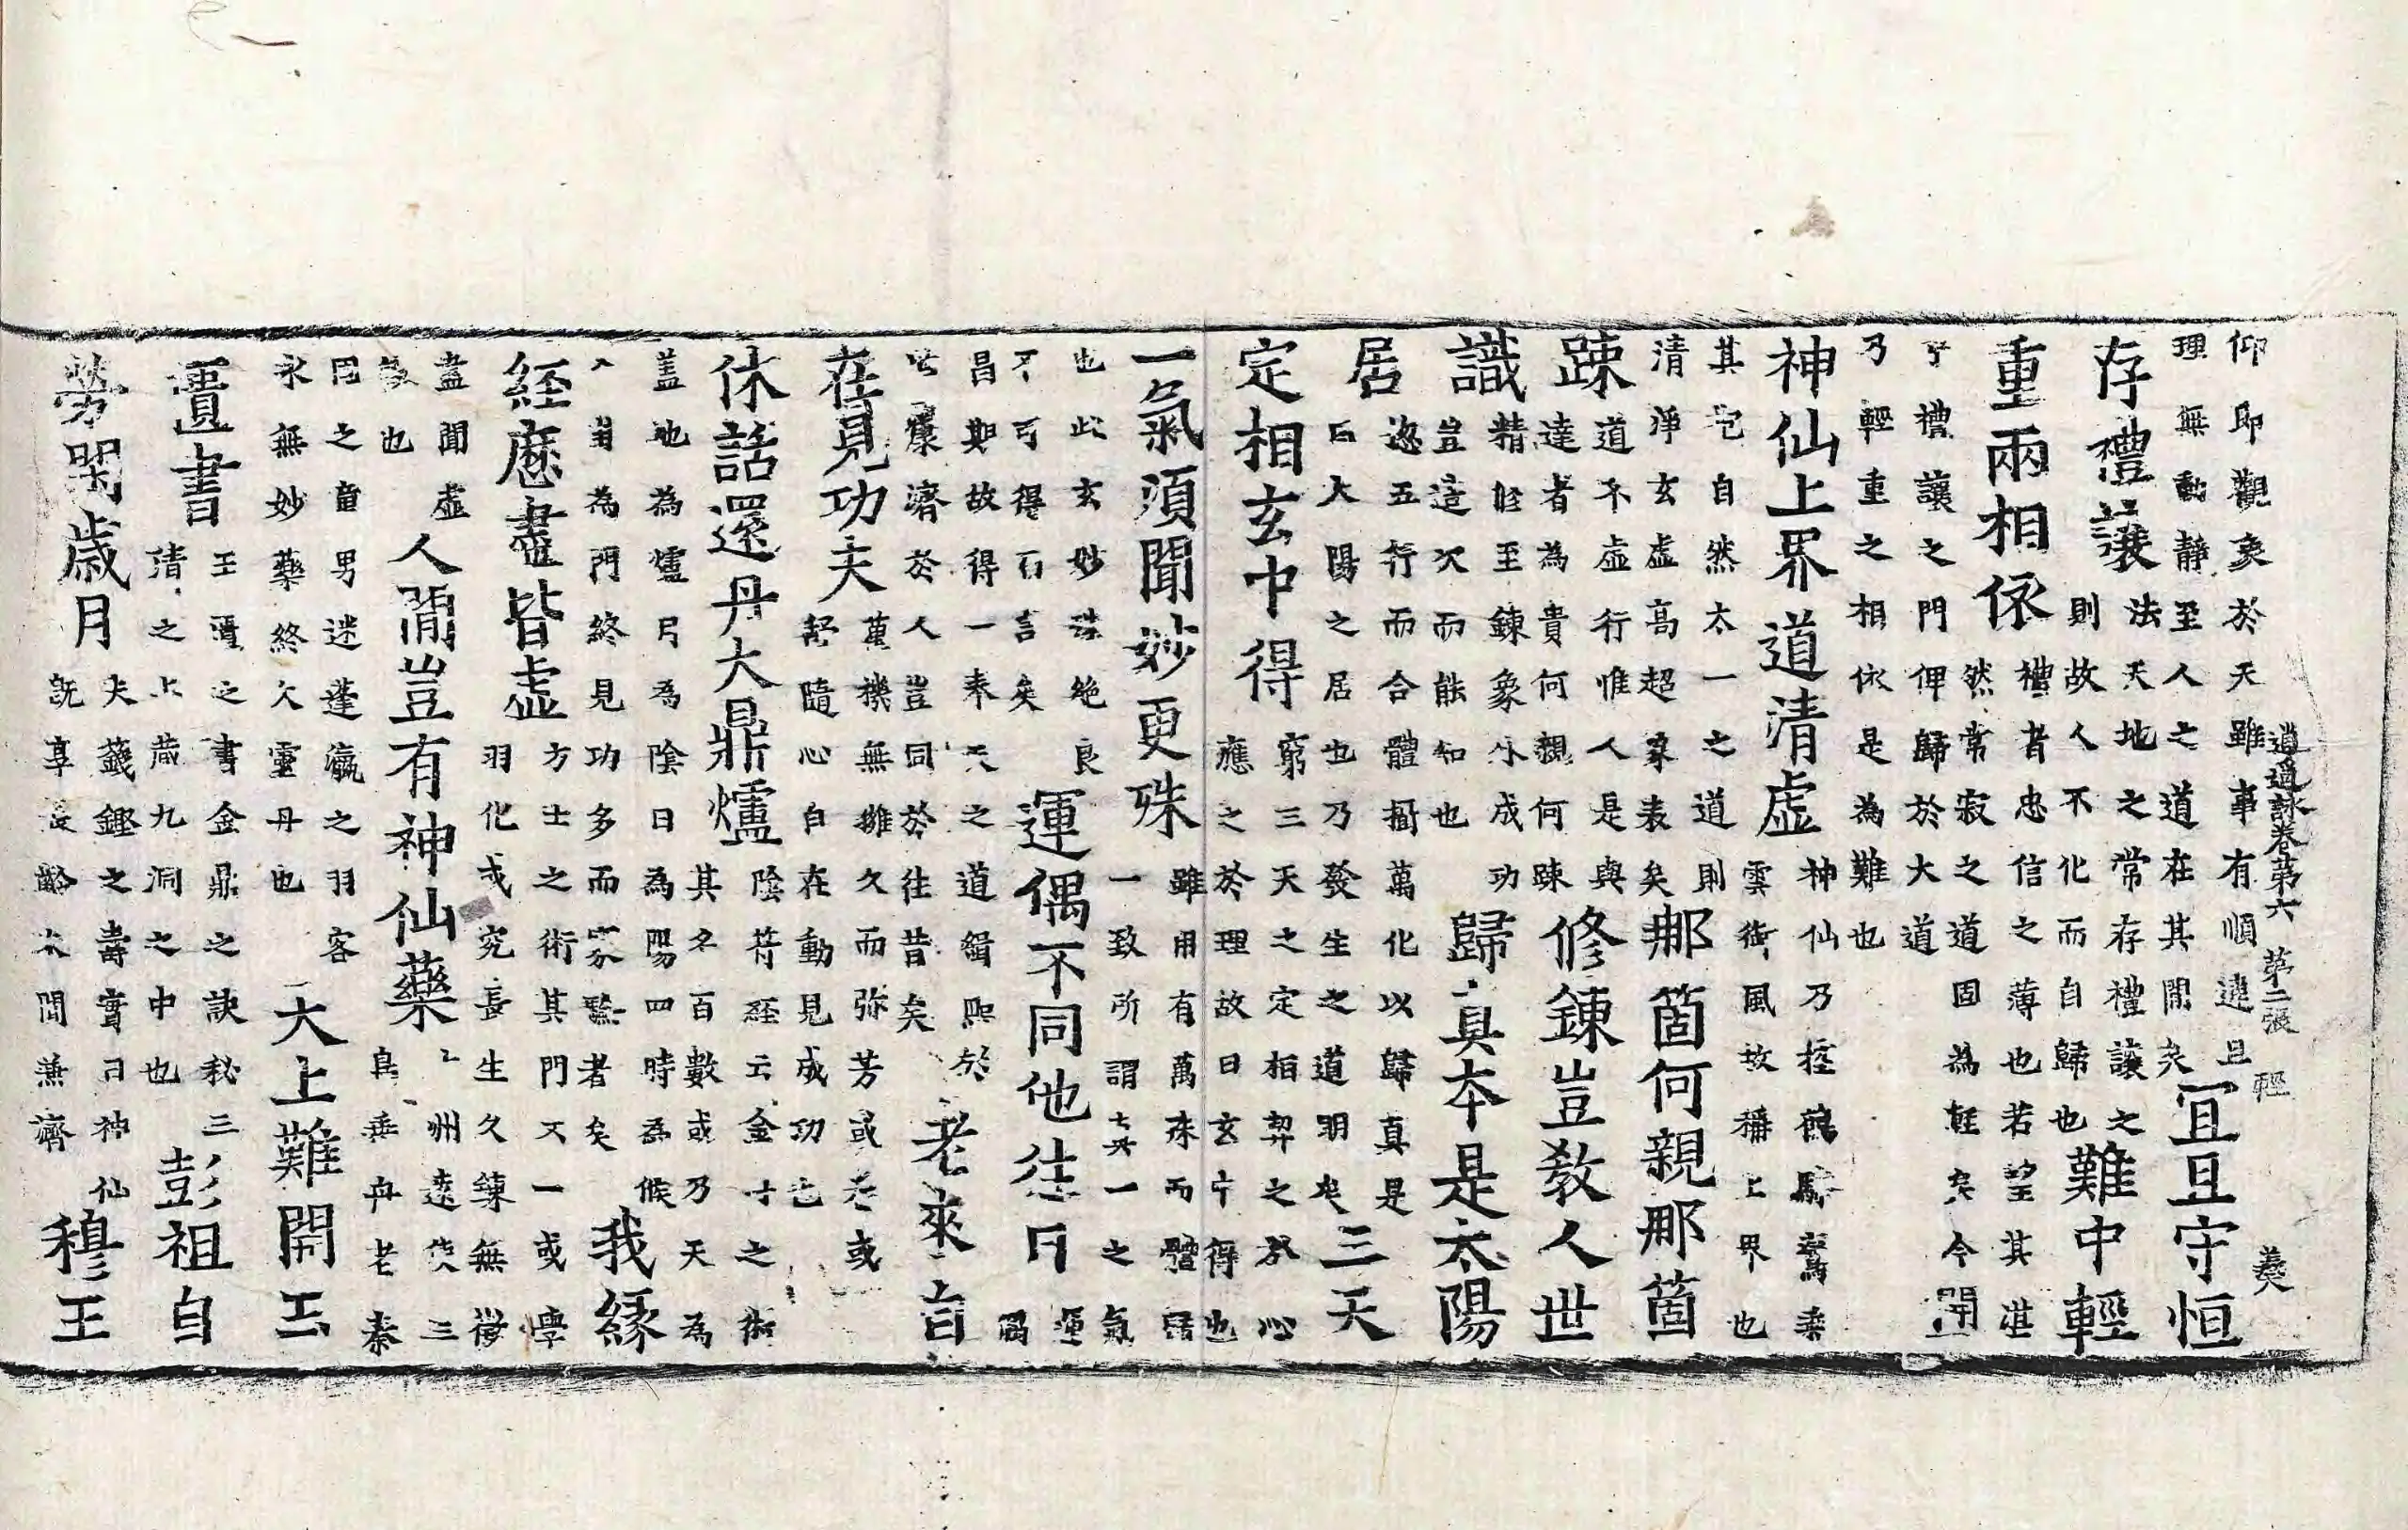 逍遙詠卷第六 第二張 輕 羲
仰即觀象於天雖事有順違且
理無動靜至人之道在其間矣
宜且守恒
存禮讓
法天地之常存禮讓之
則故人不化而自歸也
難中輕
重兩相依
禮者忠信之薄也若望其湛
然常寂之道固為輕矣今開
于禮讓之門俾歸於大道
乃輕重之相依是為難也
神仙上界道清虛
神仙乃控鶴驂鸞乘
雲御風故稱上界也
其宅自然太一之道則
清淨玄虛高超象表矣
那箇何親那箇
踈
道不虛行惟人是與
達者為貴何親何踈
修鍊豈教人世
識
精修至鍊象外成功
豈造次而能知也
歸真本是太陽
居
恣五行而合體摶萬化以歸真是
曰大陽之居也乃發生之道明矣
三天
定相玄中得
窮三天之定相契之於心
應之於理故曰玄中得也
一氣須聞妙更殊
雖用有萬殊而體歸
一致所謂真一之氣
也此玄妙殊絕良
不可得而言矣
運偶不同他往日
運
偶
昌期故得一奉天之道緝熙於
世康濟於人豈同於往昔矣
老來皆
在見功夫
萬機無擁久而弥芳或老或
輕隨心自在動見成功也
休話還丹大鼎爐
陰符經云金丹之術
其名百數或乃天為
蓋地為爐月為陰日為陽四時為候
八節為門終見功多而家鑒者矣
我緣
經歷盡皆虛
方士之術其門不一或學
羽化或究長生久鍊無徵
盡聞虛
誕也
人間豈有神仙藥
十州遠使三
島垂舟老秦
國之童男迷蓬瀛之羽客
永無妙藥終久靈丹也
大上難開玉
匱書
玉匱之書金鼎之訣秘三
清之上藏九洞之中也
彭祖自
勞閑歲月
夫籛鏗之壽實曰神仙
既享長齡未聞兼濟
穆王